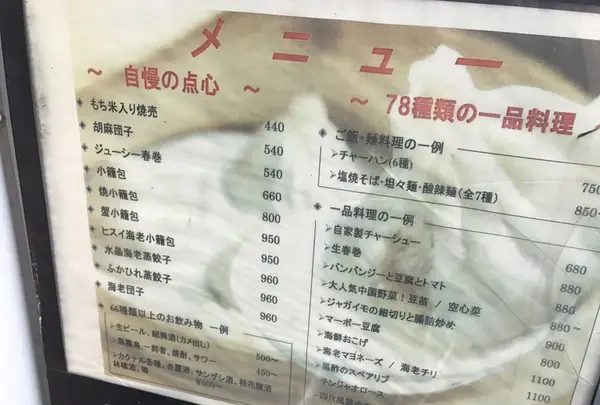 メニュー
～ 自慢の点心 ～
もち米入り焼売 440
胡麻団子 540
ジューシー春巻 540
小籠包 660
焼小籠包 800
蟹小籠包 950
ヒスイ海老小籠包 950
水晶海老蒸餃子 960
ふかひれ蒸餃子 960
海老団子 960
66種類以上のお飲み物 一例
➢生ビール、紹興酒(カメ出し) 500～
焼酎、サワー 450～
➢カクテル各種、杏露酒、サンザシ酒、桂花陳酒
林檎酒、等 ¥500～
～ 78種類の一品料理
ご飯・麺料理の一例
➢チャーハン(6種) 750
➢塩焼そば・坦々麺・酸辣麺(全7種) 850～
一品料理の一例
➢自家製チャーシュー 680
➢生春巻 880
➢バンバンジーと豆腐とトマト 880
➢大人気中国野菜！豆苗 / 空心菜 880～
➢ジャガイモの細切りと腸詰炒め 900
➢マーボー豆腐 800
➢海鮮おこげ 1100
➢海老マヨネーズ / 海老チリ 1100
➢黒酢のスペアリブ
チンジャオロース